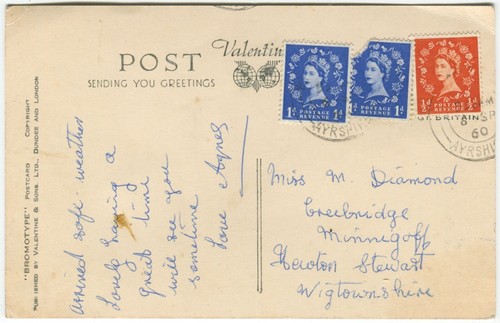 POST
Valentin
SENDING YOU GREETINGS
"BROMOTYPE" POSTCARD COPYRIGHT
PUBLISHED BY VALENTINE & SONS. LTD., DUNDEE AND LONDON
arrived safe. weather
Lovely having a
great time
will see you
sometime
Love Agnes
1D POSTAGE REVENUE 1D
1D POSTAGE REVENUE 1D
½D POSTAGE REVENUE ½D
AYRSHI
8 SP
60
AYRSHI
BRITAIN
Miss M. Diamond
Creebridge
Minnigoff
Newton Stewart
Wigtownshire